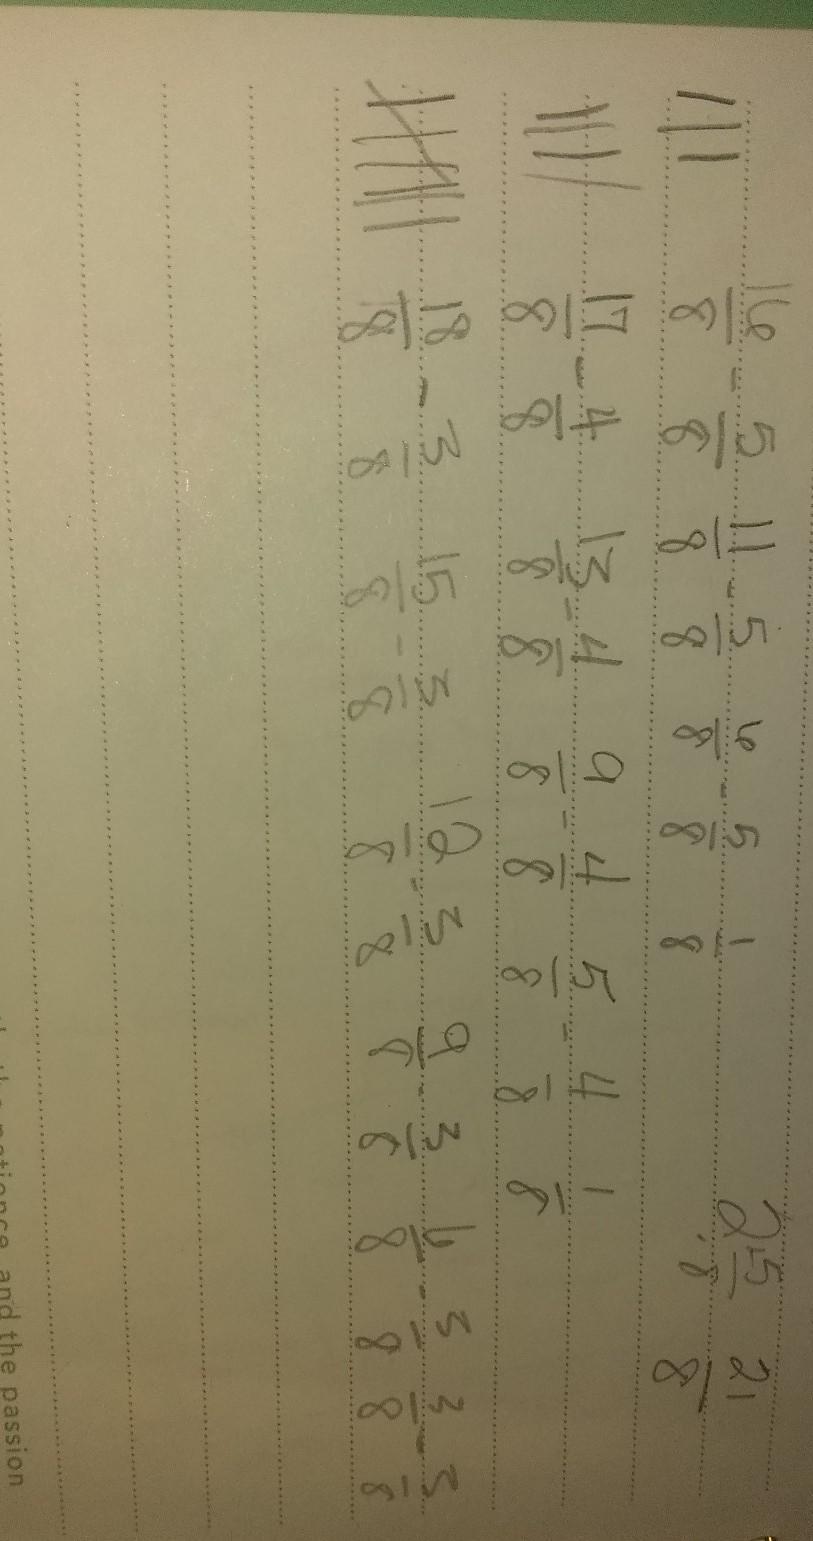 16/8 - 5/8 11/8 - 5/8 6/8 - 5/8 1/8 2 5/8 21/8
17/8 - 4/8 13/8 - 4/8 9/8 - 4/8 5/8 - 4/8 1/8
18/8 - 3/8 15/8 - 3/8 12/8 - 3/8 9/8 - 3/8 6/8 - 3/8 3/8 - 3/8
and the passion